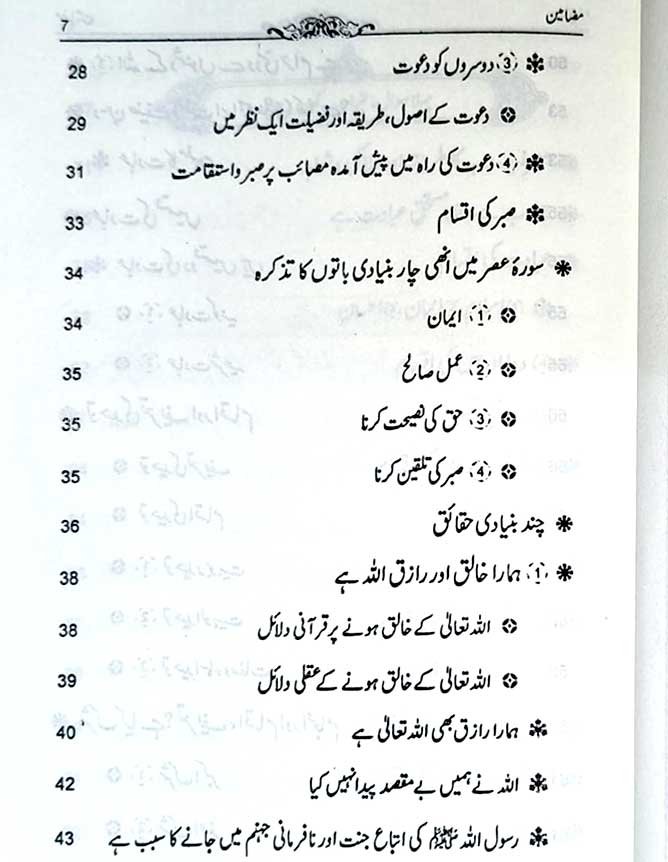 مضامین 7
(3) دوسروں کو دعوت 28
دعوت کے اصول، طریقہ اور فضیلت ایک نظر میں 29
(4) دعوت کی راہ میں پیش آمدہ مصائب پر صبر و استقامت 31
صبر کی اقسام 33
سورۂ عصر میں انھی چار بنیادی باتوں کا تذکرہ 34
(1) ایمان 34
(2) عمل صالح 35
(3) حق کی نصیحت کرنا 35
(4) صبر کی تلقین کرنا 35
چند بنیادی حقائق 36
(1) ہمارا خالق اور رازق اللہ ہے 38
اللہ تعالیٰ کے خالق ہونے پر قرآنی دلائل 38
اللہ تعالیٰ کے خالق ہونے کے عقلی دلائل 39
ہمارا رازق بھی اللہ تعالیٰ ہے 40
اللہ نے ہمیں بے مقصد پیدا نہیں کیا 42
رسول اللہ ﷺ کی اتباع جنت اور نافرمانی جہنم میں جانے کا سبب ہے 43